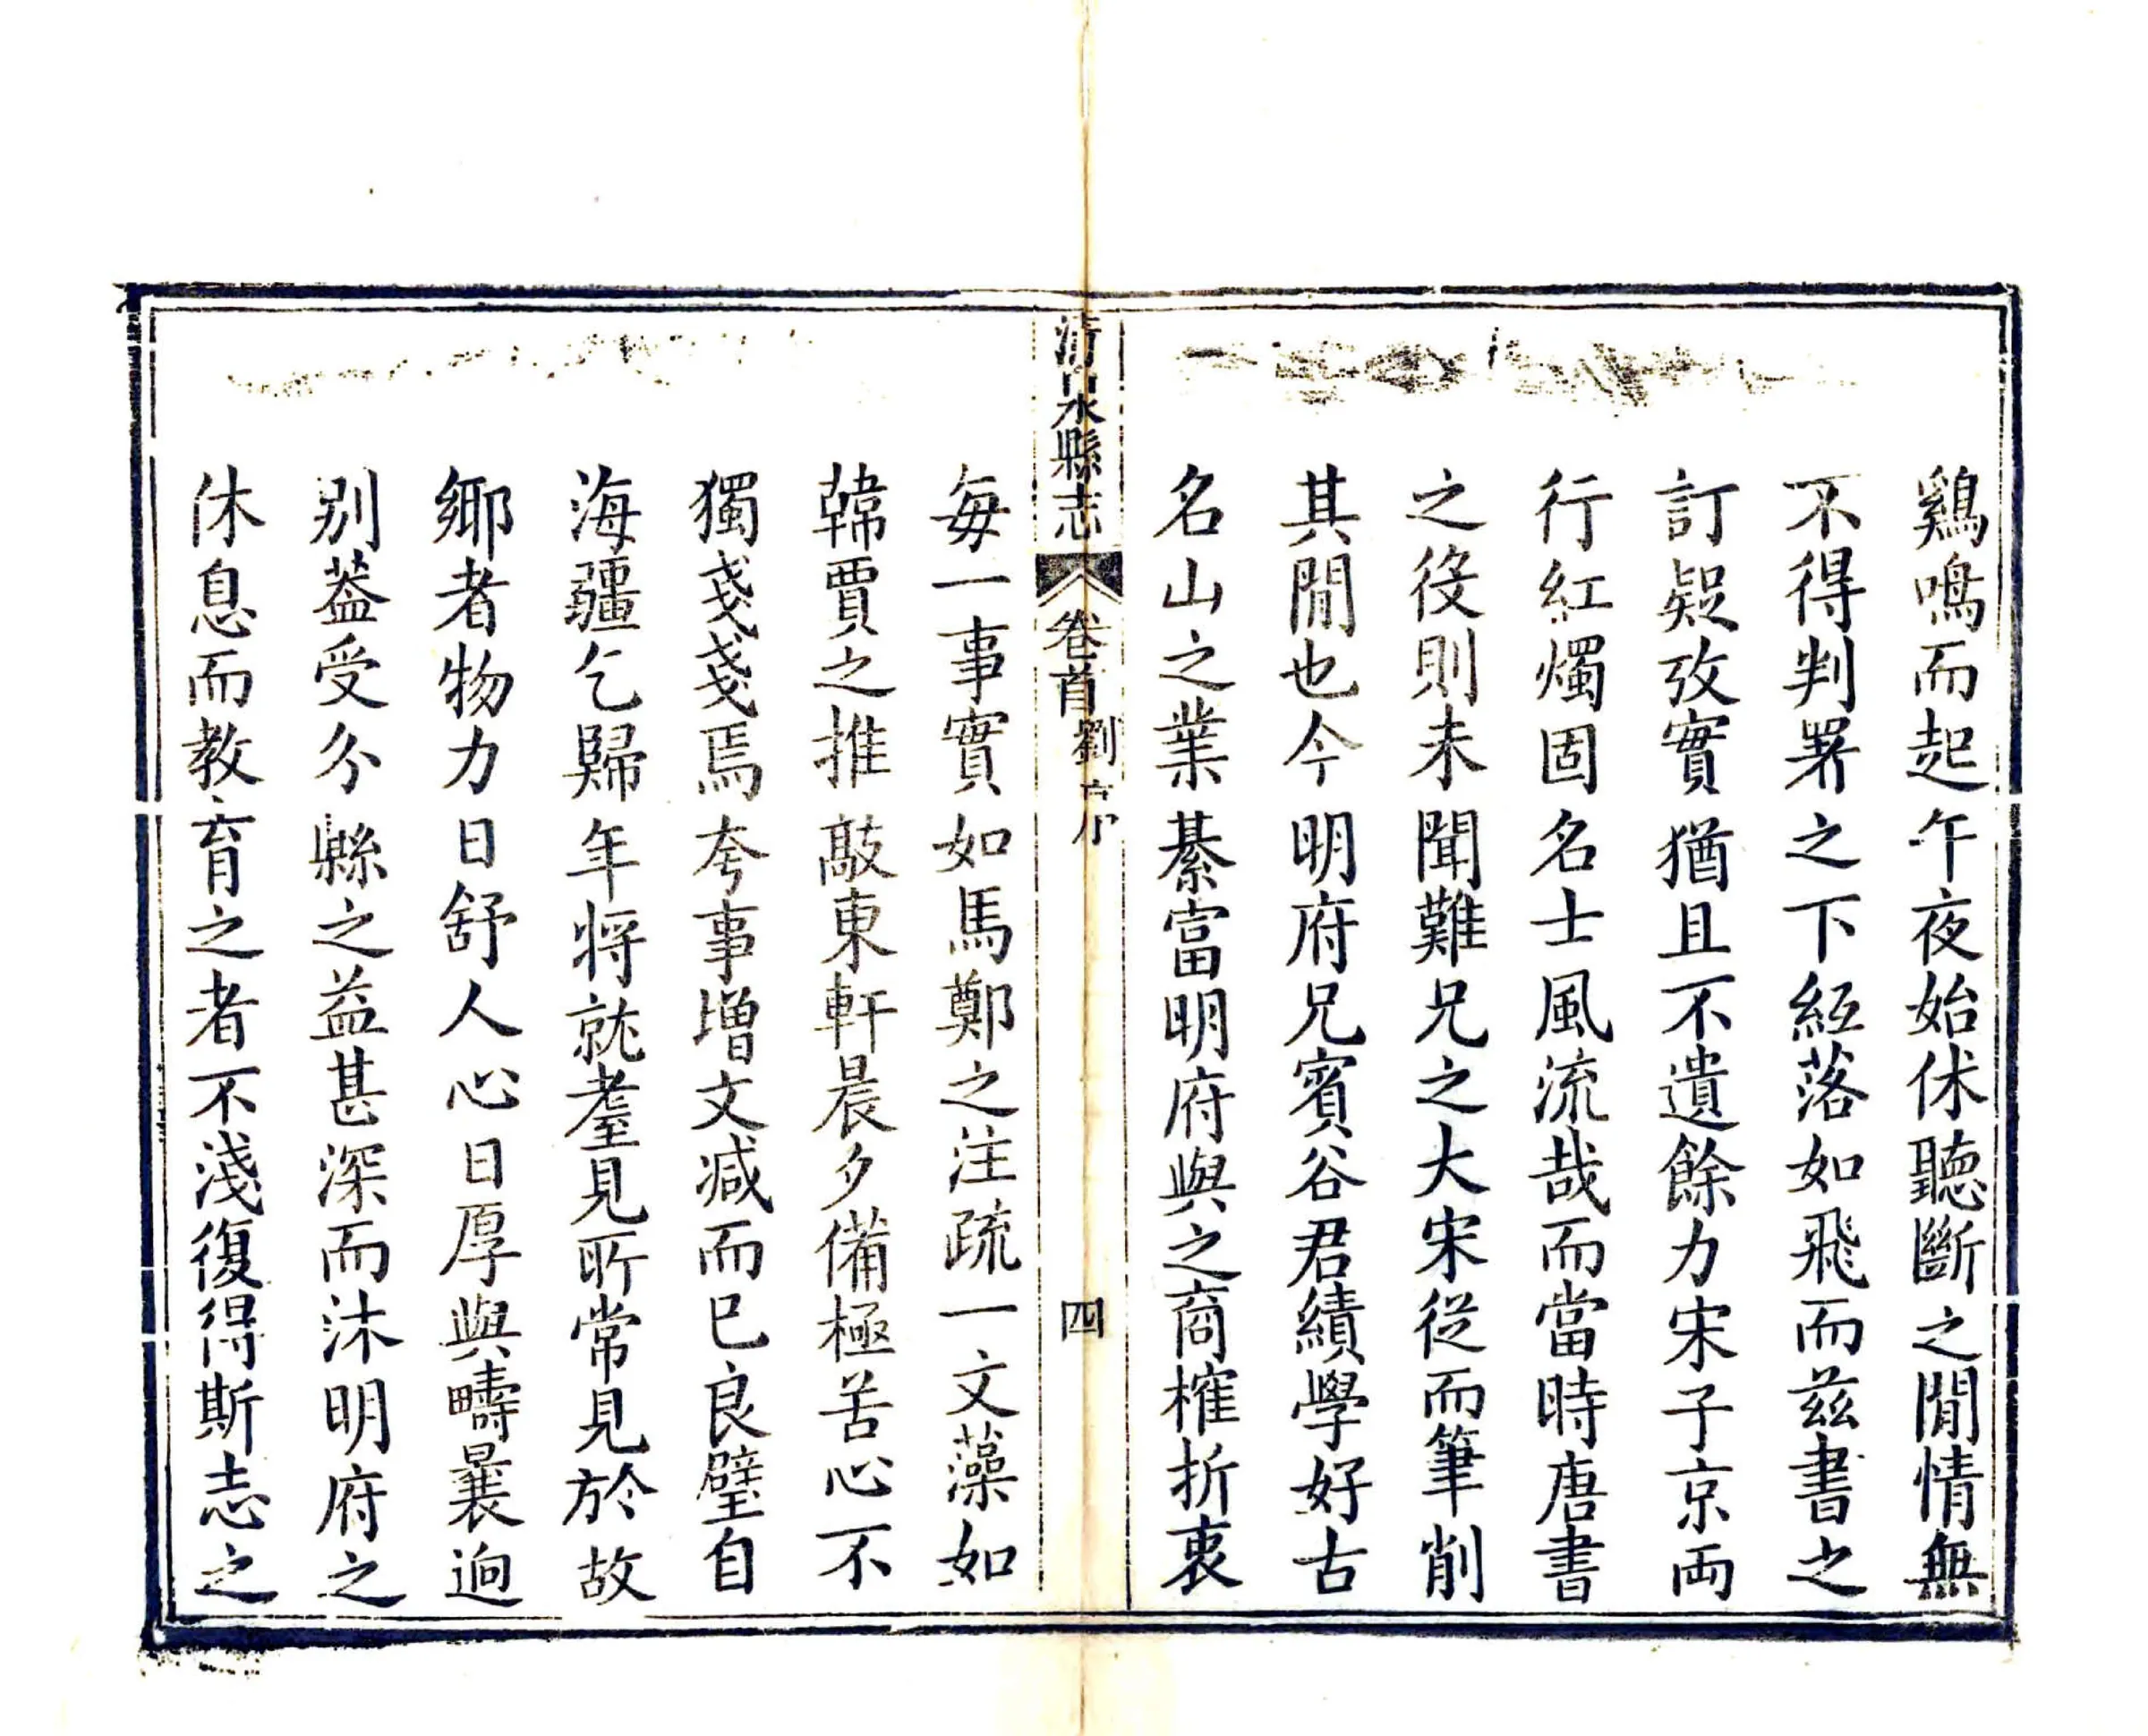 鷄鳴而起午夜始休聽斷之閒情無
不得判署之下紅落如飛而茲書之
訂疑攷實猶且不遺餘力宋子京兩
行紅燭固名士風流哉而當時唐書
之役則未聞難兄之大宋從而筆削
其閒也今明府兄賓谷君績學好古
名山之業綦富明府與之商榷折衷
清泉縣志
卷首
劉序
四
每一事實如馬鄭之注疏一文藻如
韓賈之推敲東軒晨夕備極苦心不
獨戔戔焉夸事增文减而已良璧自
海疆乞歸年將就耋見所常見於故
鄉者物力日舒人心日厚與疇曩逈
别葢受分縣之益甚深而沐明府之
休息而教育之者不淺復得斯志之